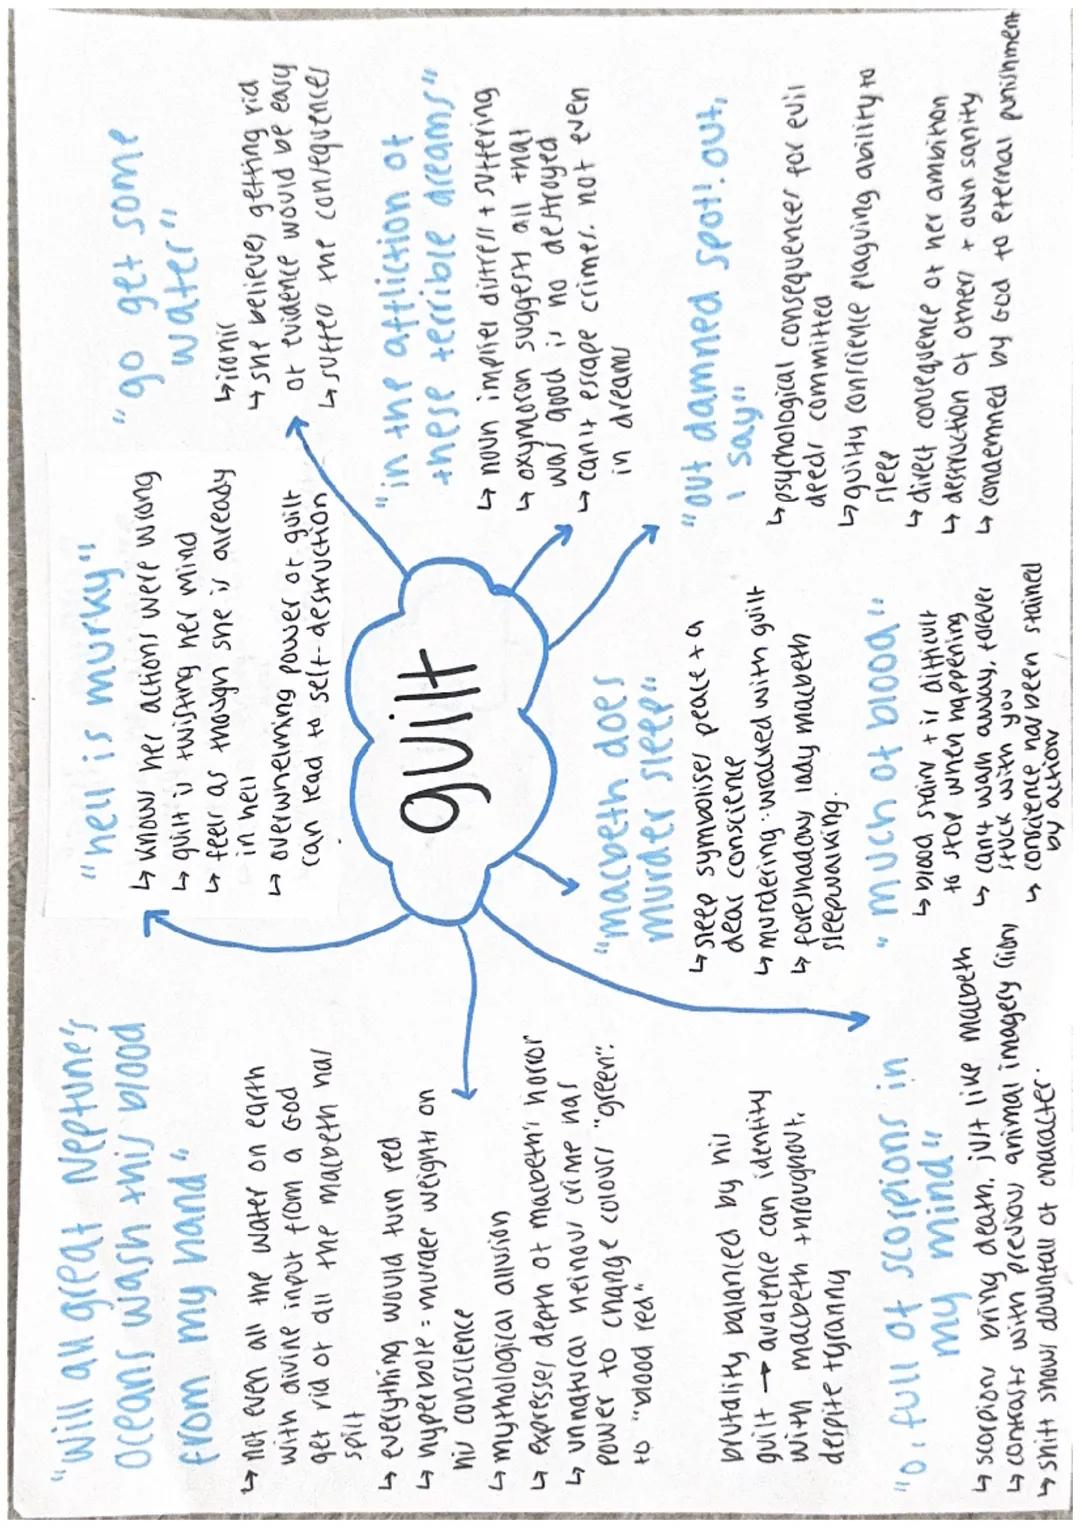 "will all great Neptune's
oceans wash this blood
from my hand"
↳ not even all the water on earth
with divine input from a God
get rid of all the macbeth has
spilt
↳ everything would turn red
↳ hyperbole = murder weights on
his conscience
↳ mythological allusion
↳ expresses depth of macbeth's horror
↳ unnatural heinous crime has
power to change colours "green".
to "blood red"
brutality balanced by his
guilt → avalence can identity
with macbeth throughout.
despite tyranny
"O, full of scorpions in
my mind"
↳ scorpions bring death. just like macbeth
↳ contrasts with previous animal imagery (lion)
↳ shift shows downfall of character.
"hell is murky"
↳ knows her actions were wrong
↳ guilt is twisting her mind
↳ feels as though she is already
in hell
↳ overwhelming power of guilt
can lead to self-destruction
guilt
"macbeth does
murder sleep"
↳ sleep symbolises peace + a
clear conscience
↳ murdering: wracked with guilt
↳ foreshadows lady macbeth
sleepwalking.
"much of blood"
↳ blood stains + is difficult
to stop when happening
↳ can't wash away, forever
stuck with you
↳ conscience has been stained
by action
"go get some
water"
↳ ironic
↳ she believes getting rid
of evidence would be easy
↳ suffers the consequences
"in the affliction of
these terrible dreams"
↳ noun implies distress + suffering
↳ oxymoron suggests all that
was good is no destroyed
↳ can't escape crimes. not even
in dreams
"out damned spot! out,
I say"
↳ psychological consequences for evil
deeds committed
↳ guilty conscience plaguing ability to
sleep
↳ direct consequence of her ambition
↳ destruction of others + own sanity
↳ condemned by God to eternal punishment